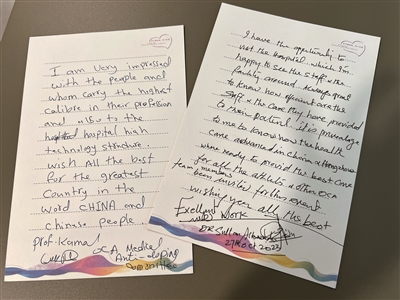 I am Very impressed
with the people and
whom carry the highest
calibre in their profession
and also to the
hospital high
technology structure.
wish All the best
for the greatest
Country in the
word CHINA and
chinese people
Prof. Kamal
A Medical
Anti-doping
I have the opportunity to
visit the Hospital which I'm
happy to see the staff & the
facility around
to know how efficient are the
staff & the care they have provided
to their patient. it is
to me to know how the health
care advanced in china &
were ready to provid the best care
for all the athletic & others
team members
been invited for this event
wishing you all the best
Excellent work
DR Sultan
27th Oct 2023